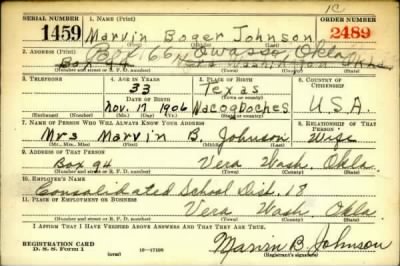 1C
SERIAL NUMBER 1. NAME (Print) ORDER NUMBER
1459 Marvin Boger Johnson 2489
(First) (Middle) (Last)
2. ADDRESS (Print) Box 166 Owasso, Okla
Box 94 Vera Washington Okla.
(Number and street or R. F. D. number) (Town) (County) (State)
3. TELEPHONE 4. AGE IN YEARS 5. PLACE OF BIRTH 6. COUNTRY OF CITIZENSHIP
33 Texas
(Town or county)
DATE OF BIRTH
Nov. 17 1906 Nacogdoches U.S.A.
(Exchange) (Number) (Mo.) (Day) (Yr.) (State or country)
7. NAME OF PERSON WHO WILL ALWAYS KNOW YOUR ADDRESS 8. RELATIONSHIP OF THAT PERSON
Mrs Marvin B. Johnson Wife
(Mr., Mrs., Miss) (First) (Middle) (Last)
9. ADDRESS OF THAT PERSON
Box 94 Vera Wash. Okla.
(Number and street or R. F. D. number) (Town) (County) (State)
10. EMPLOYER'S NAME
Consolidated School Dist. 18
11. PLACE OF EMPLOYMENT OR BUSINESS
Vera Wash. Okla.
(Number and street or R. F. D. number) (Town) (County) (State)
I AFFIRM THAT I HAVE VERIFIED ABOVE ANSWERS AND THAT THEY ARE TRUE.
REGISTRATION CARD
D. S. S. Form 1 (over) 16—17105 Marvin B. Johnson
(Registrant's signature)